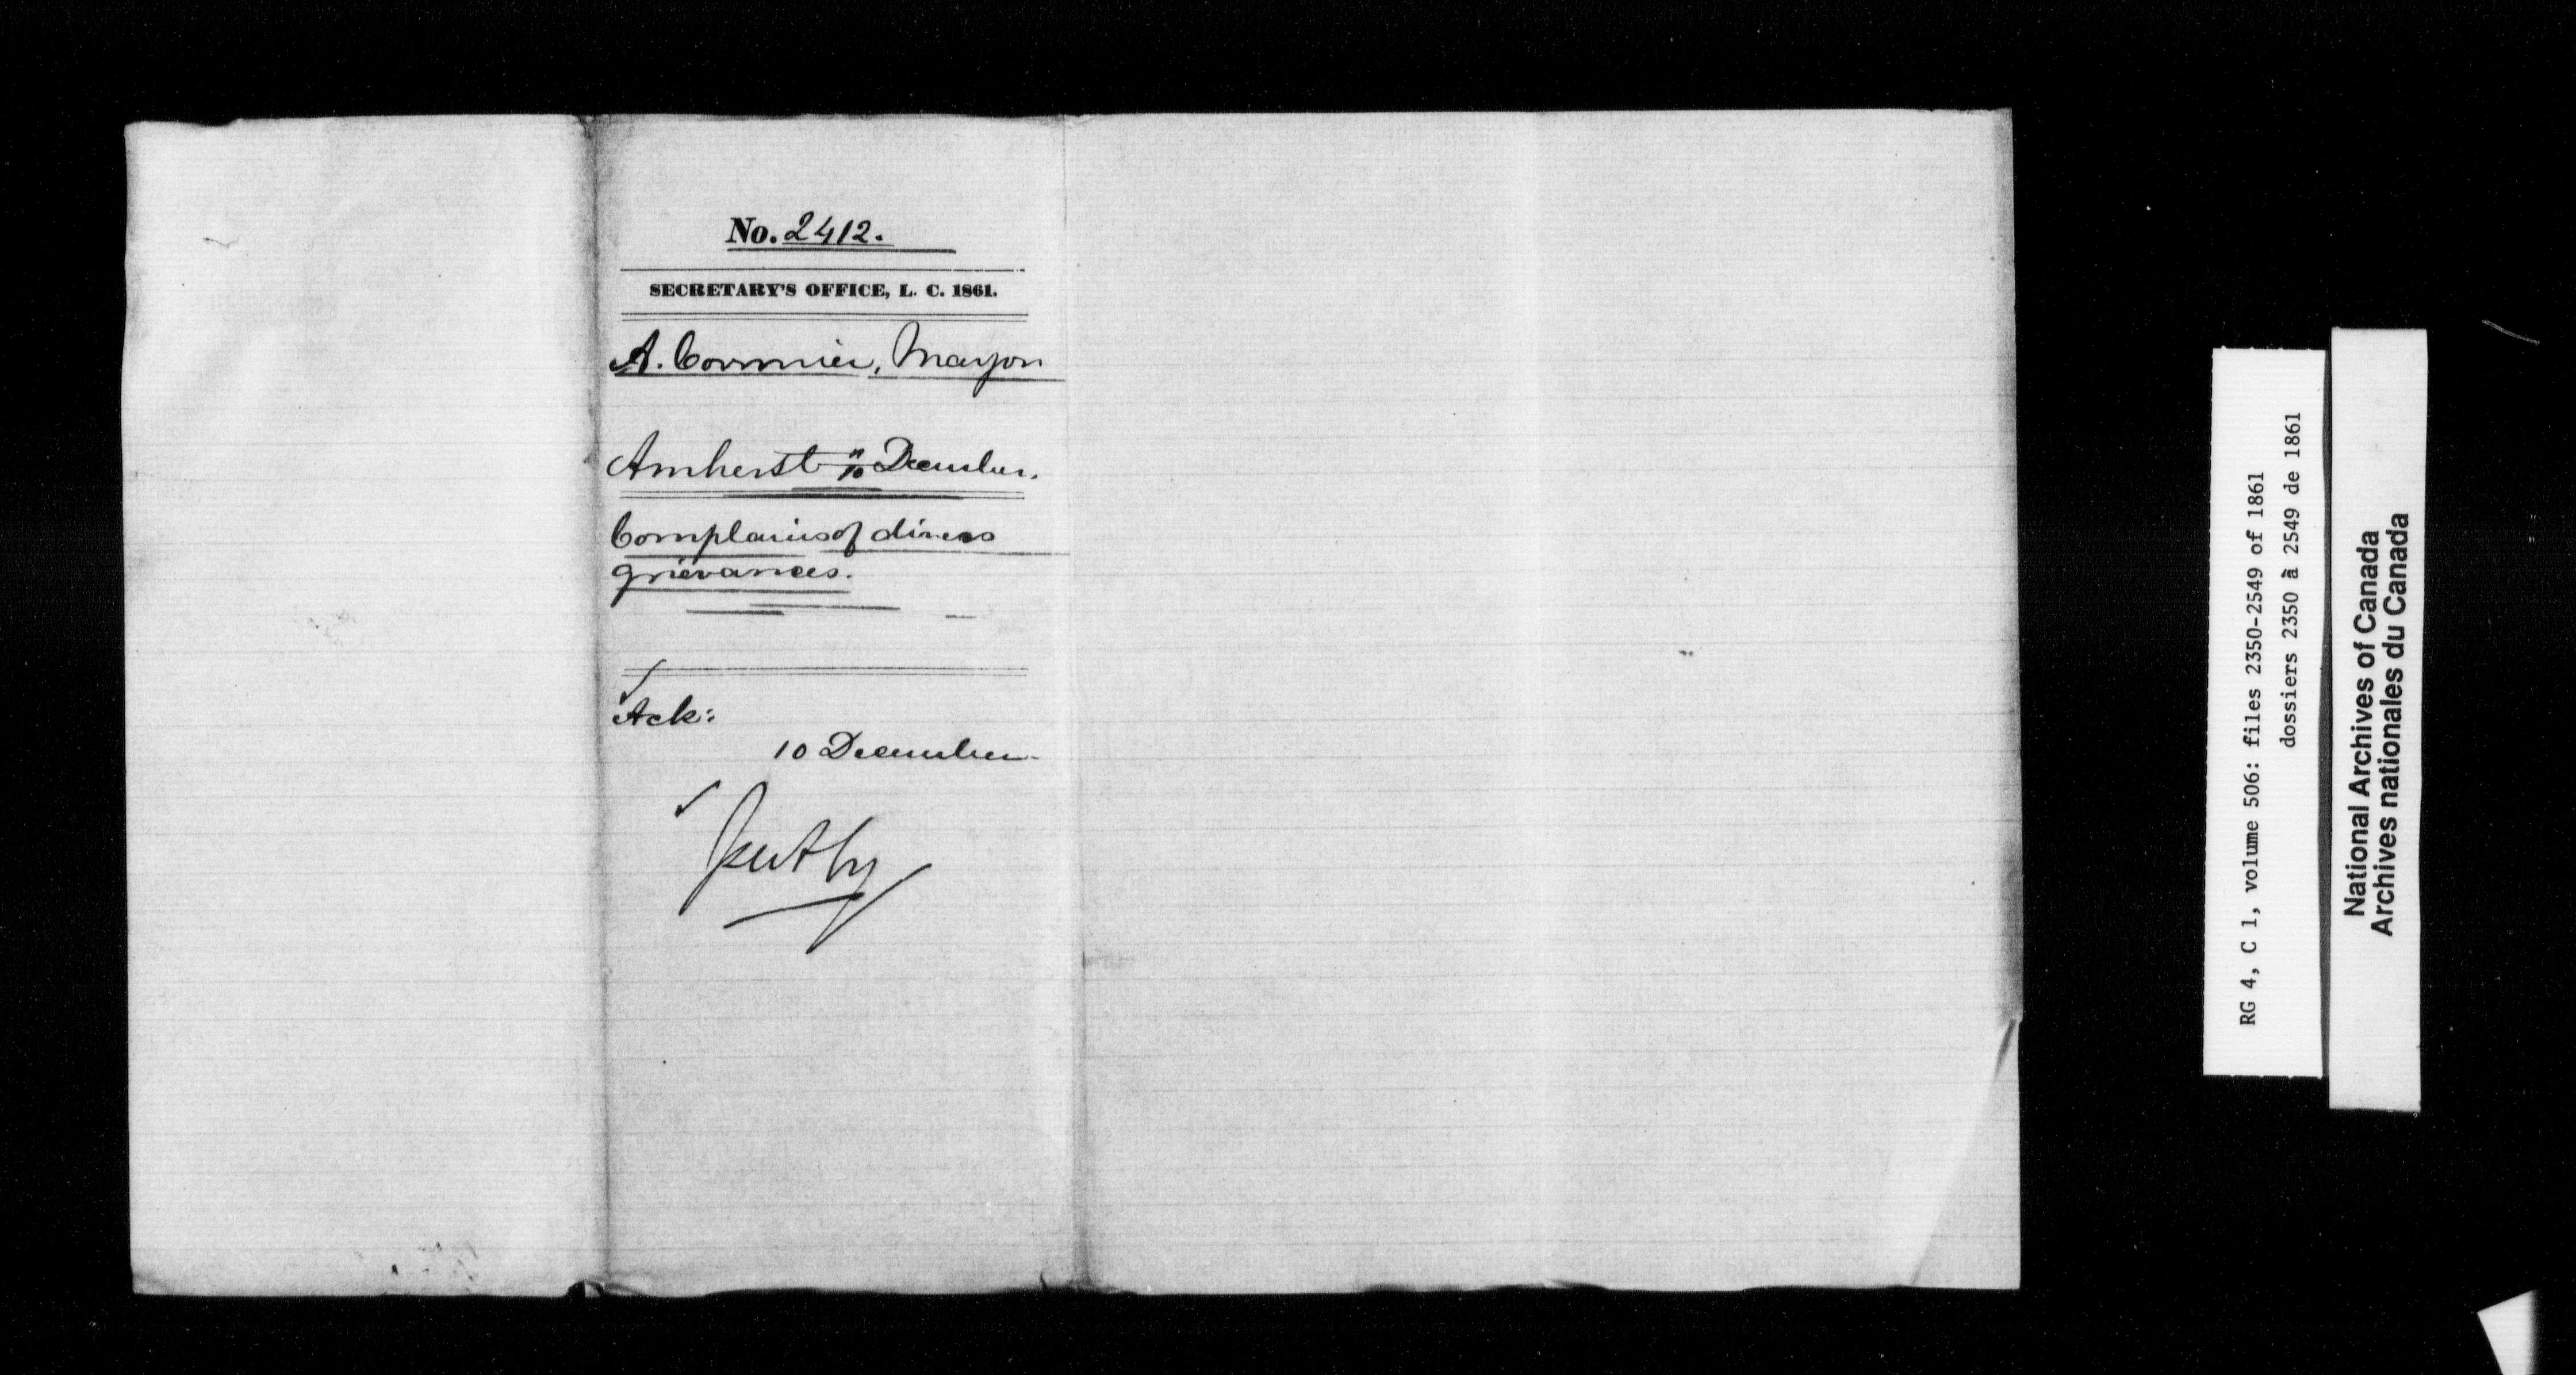 No. 2412.
SECRETARY'S OFFICE, L. C. 1861.
A. Cormier, Mayor
Amherst 10 December.
Complains of divers
grievances.
Ack:
10 December
RG 4, C 1, volume 506: files 2350-2549 of 1861
dossiers 2350 à 2549 de 1861
National Archives of Canada
Archives nationales du Canada